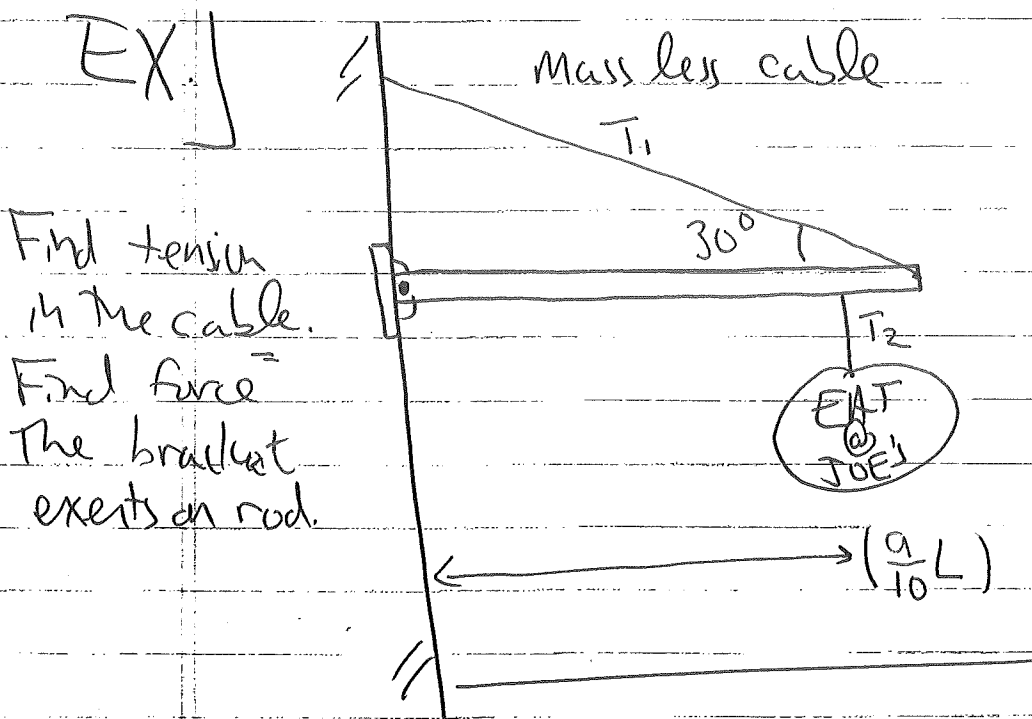 EX.
Massless cable
T₁
30°
Find tension
in the cable.
Find force
The bracket
exerts on rod.
T₂
EAT
@
JOE's
(9/10 L)